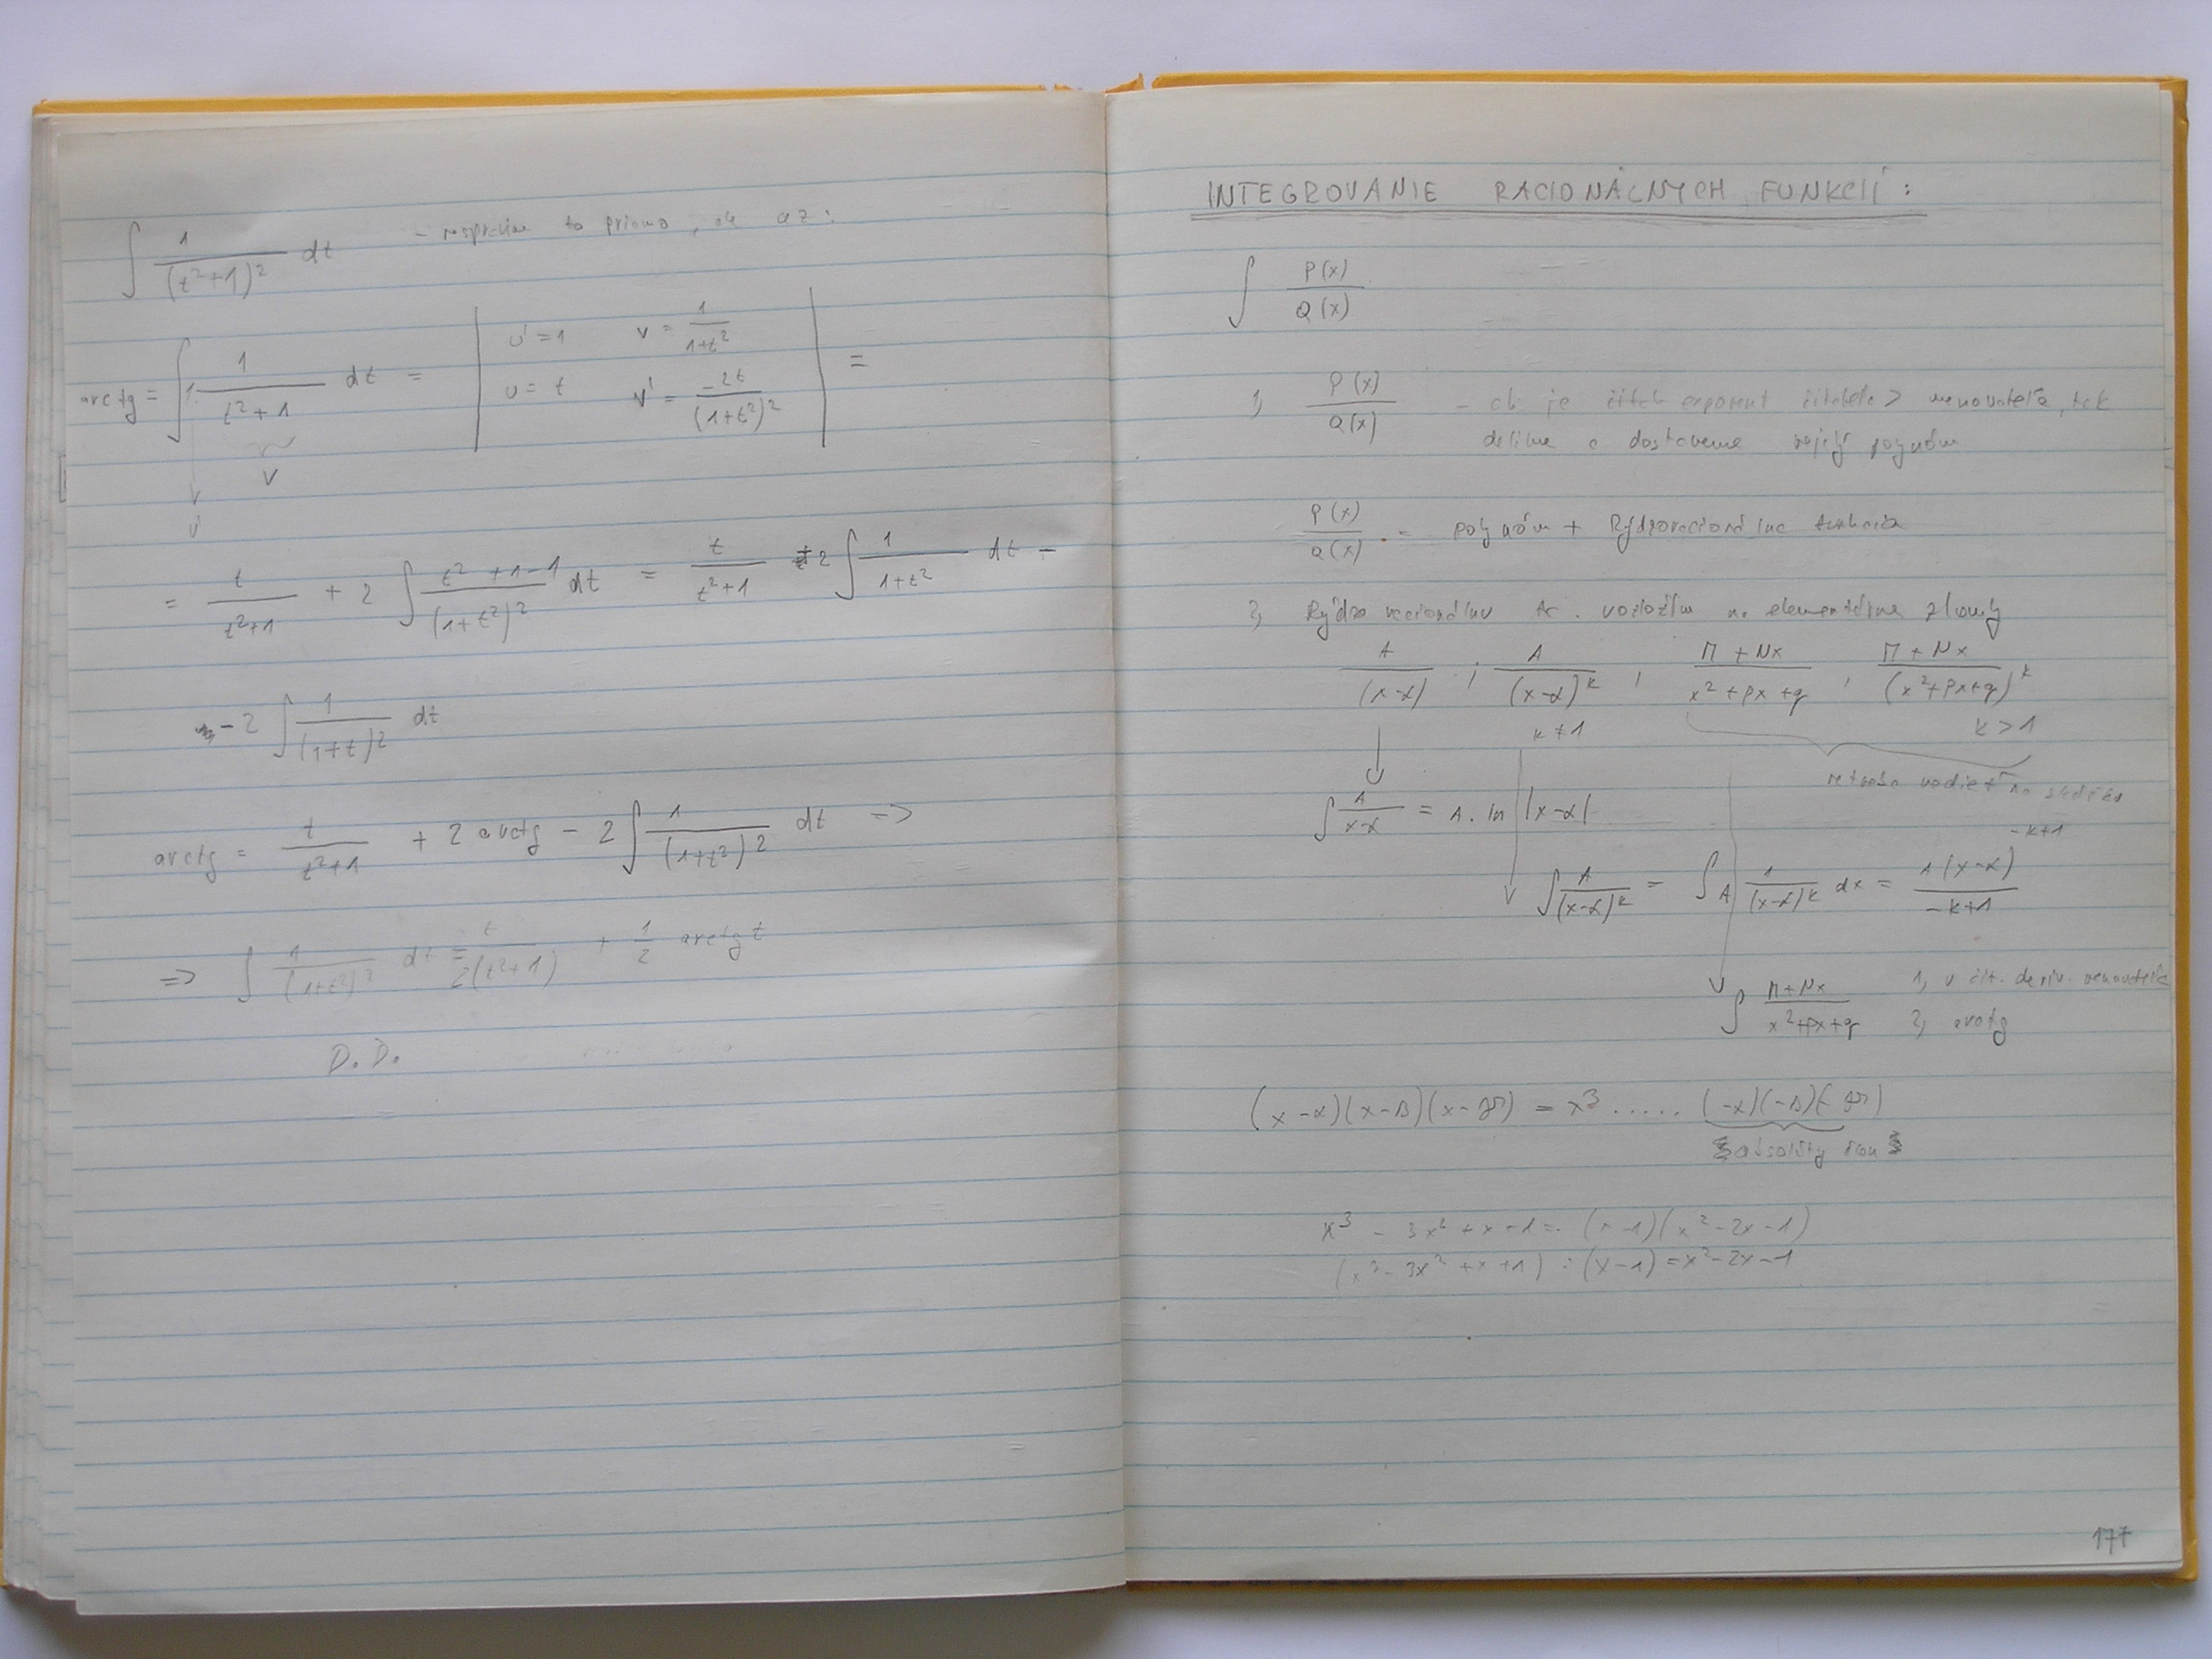 ∫ 1/(t²+1)² dt - to priamo, ale az:
arctg = ∫ 1· 1/(t²+1) dt = | u' = 1 v = 1/(1+t²) u = t v' = -2t/(1+t²)² | =
v
u'
= t/(t²+1) + 2 ∫ (t²+1-1)/(1+t²)² dt = t/(t²+1) + 2 ∫ 1/(1+t²) dt -
- 2 ∫ 1/(1+t)² dt
arctg = t/(t²+1) + 2 arctg - 2 ∫ 1/(1+t²)² dt =>
=> ∫ 1/(1+t²)² dt = t/(2(t²+1)) + 1/2 arctg t
D.D.
INTEGROVANIE RACIONÁLNYCH FUNKCIÍ:
∫ P(x)/Q(x)
1, P(x)/Q(x) - ak je exponent čitateľa > menovateľa, tak
delíme a dostaneme nejaký polynóm
P(x)/Q(x) = polynóm + Rýdzoracionálna funkcia
2, Rýdzo racionálnu fc. rozložím na elementárne zlomky
A/(x-α) ; A/(x-α)^k , (M+Nx)/(x²+px+q) , (M+Nx)/(x²+px+q)^k
k ≠ 1 k > 1
netreba vedieť na
∫ A/(x-α) = A. ln |x-α|
∫ A/(x-α)^k = ∫ A 1/(x-α)^k dx = 1(x-α)^(-k+1)/(-k+1)
∫ (M+Nx)/(x²+px+q) 1, v čit. deriv. menovateľa
2, arctg
(x-α)(x-β)(x-γ) = x³ ..... (-α)(-β)(-γ)
absolútny člen
x³ - 3x² + x - 1 = (x-1)(x²-2x-1)
(x³ - 3x² + x + 1) : (x-1) = x²-2x-1
177